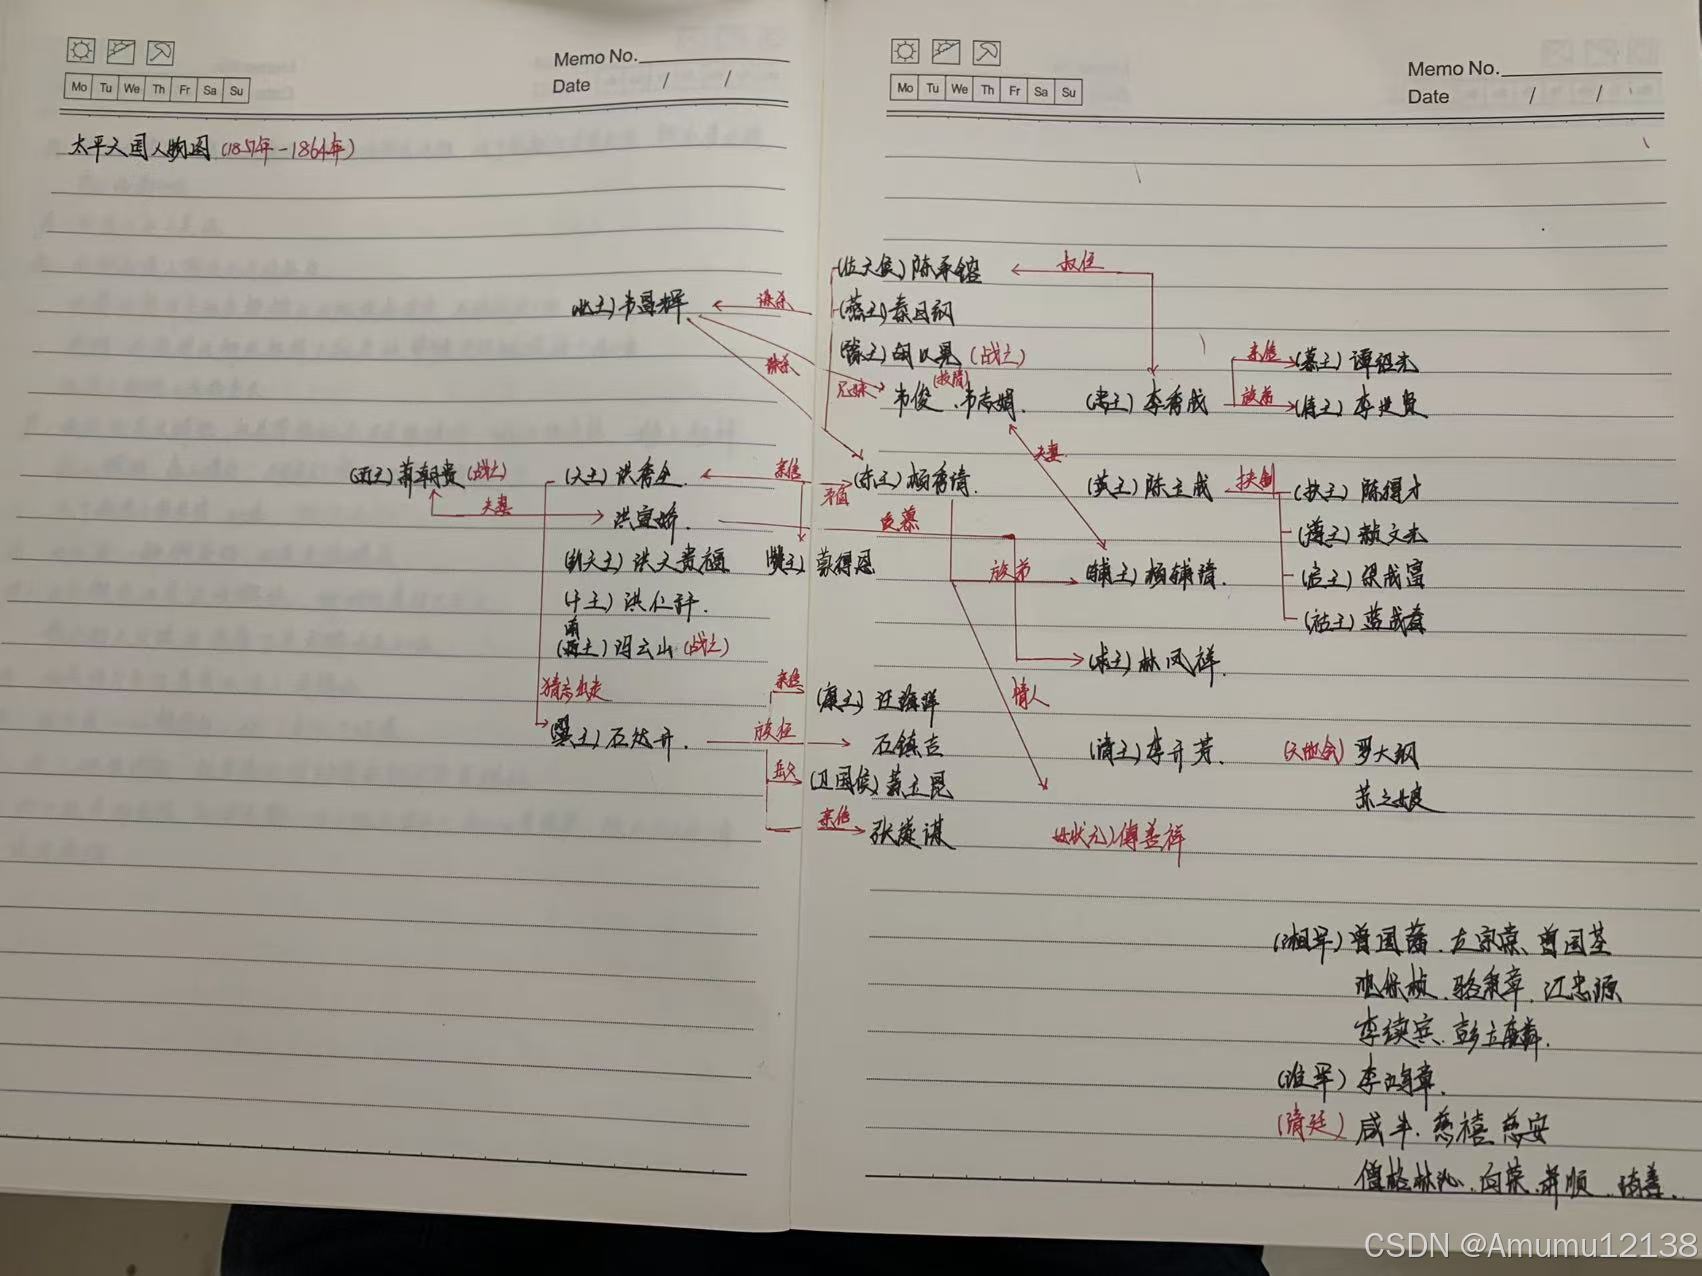 Memo No.
Mo Tu We Th Fr Sa Su
Date / /
太平天国人物图 (1851年-1864年)
Memo No.
Mo Tu We Th Fr Sa Su
Date / /
(佐天侯) 陈承镕
叔侄
(北王) 韦昌辉
谋杀
(燕王) 秦日纲
诛杀
(豫王) 胡以晃 (战亡)
亲信
(慕王) 谭绍光
兄妹
韦俊、韦志娟.
(忠王) 李秀成
族弟
(侍王) 李世贤
夫妻
(西王) 萧朝贵 (战亡)
(天王) 洪秀全.
亲信
矛盾
(东王) 杨秀清.
(英王) 陈玉成
扶制
(扶王) 陈得才
夫妻
洪宣娇.
反慕
(遵王) 赖文光
(幼天王) 洪天贵福
(赞王) 蒙得恩
族弟
(辅王) 杨辅清.
(启王) 梁成富
(干王) 洪仁玕.
(祜王) 蓝成春
南
(西王) 冯云山 (战亡)
(求王) 林凤祥.
猜忌出走
亲信
(康王) 汪海洋
情人
(翼王) 石达开.
族侄
石镇吉
(请王) 李开芳.
(天地会) 罗大纲
岳父
(卫国侯) 黄玉昆
苏三娘
亲信
张遂谋
(女状元) 傅善祥
(湘军) 曾国藩、左宗棠、曾国荃
沈保桢、骆秉章、江忠源
李续宾、彭玉麟.
(淮军) 李鸿章.
(清廷) 咸丰、慈禧 慈安
僧格林沁、向荣、肃顺、琦善.
CSDN @Amumu12138